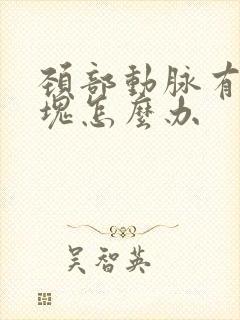 頸部動脉有
塊怎麽办
吴智英